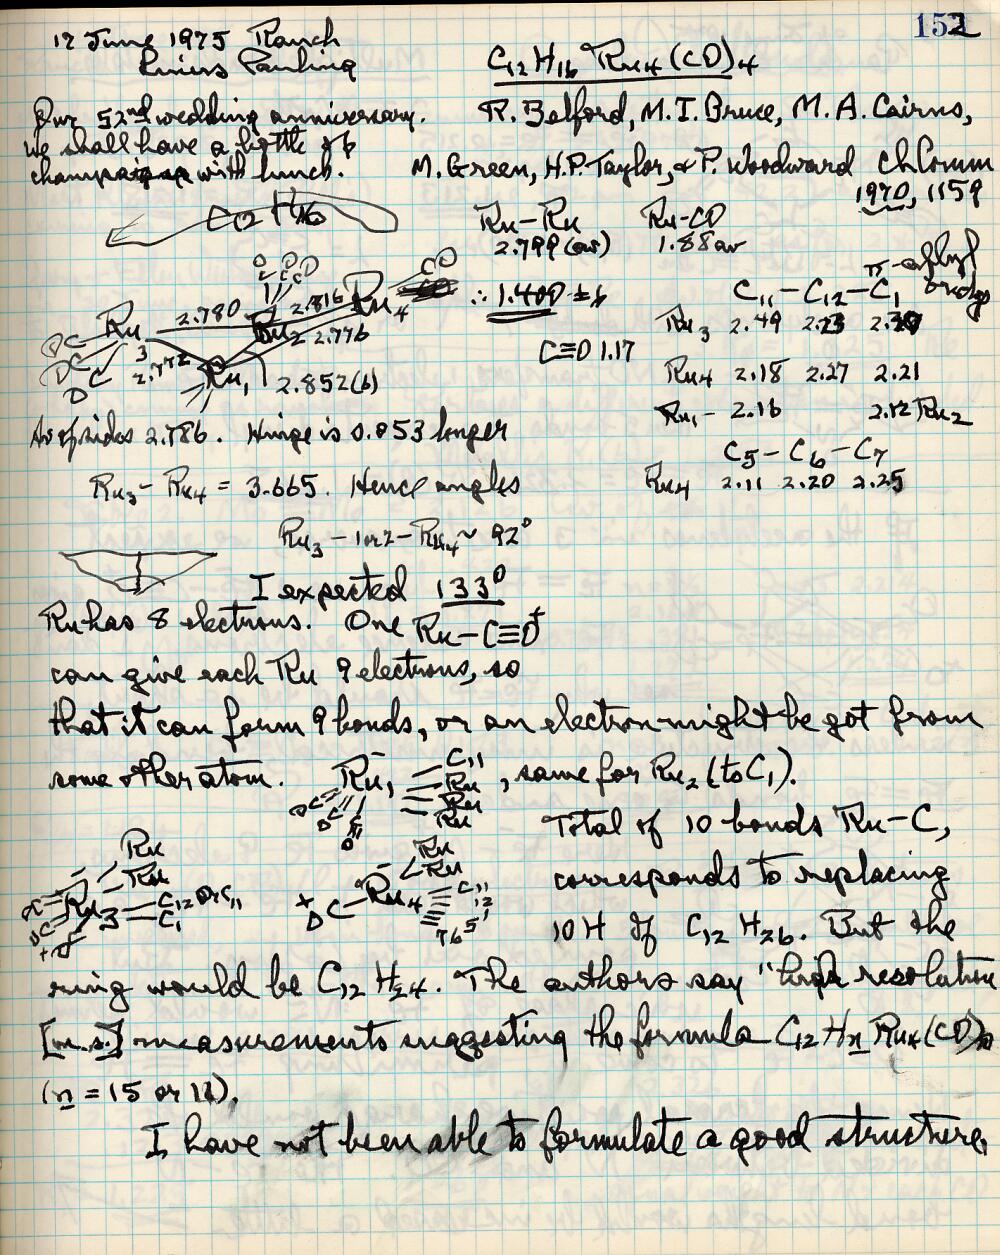 152
17 June 1975 Ranch
Linus Pauling
C12H16 Ru4(CO)4
Our 52nd wedding anniversary.
we shall have a bottle of
champagne with lunch.
R. Belford, M. I. Bruce, M. A. Cairns,
M. Green, H. P. Taylor, & P. Woodward Ch Comm
1970, 1159
C12 H16
Ru-Ru Ru-CO
2.799 (av) 1.88 av
∴ 1.400 ±
C≡O 1.17
π-allyl
bridge
C11 - C12 - C1
Ru3 2.49 2.23
Ru4 2.18 2.27 2.21
Ru1- 2.16 2.12 Ru2
C5 - C6 - C7
Ru4 2.11 2.20 2.25
O O O
C C C
Ru 2.780 Ru2 2.816 Ru4 CO
OC 3 2.776
OC 2.772
C Ru1 2.852(b)
O
Av of sides 2.786. Hinge is 0.053 longer
Ru3 - Ru4 = 3.665. Hence angles
Ru3 - 1 or 2 - Ru4 ~ 92°
I expected 133°
Ru has 8 electrons. One Ru-C≡O+
can give each Ru 9 electrons, so
that it can form 9 bonds, or an electron might be got from
some other atom. Ru1 C11 Ru Ru Ru, same for Ru2 (to C1).
Total of 10 bonds Ru-C,
corresponds to replacing
10 H of C12 H26. But the
Ru Ru Ru3 C12 or C11 C1
Ru Ru + OC Ru4 C11 12 1 7 6 5
ring would be C12 H24. The authors say "high resolution
[m.s.] measurements suggesting the formula C12 Hn Ru4 (CO)
(n = 15 or 16).
I have not been able to formulate a good structure.